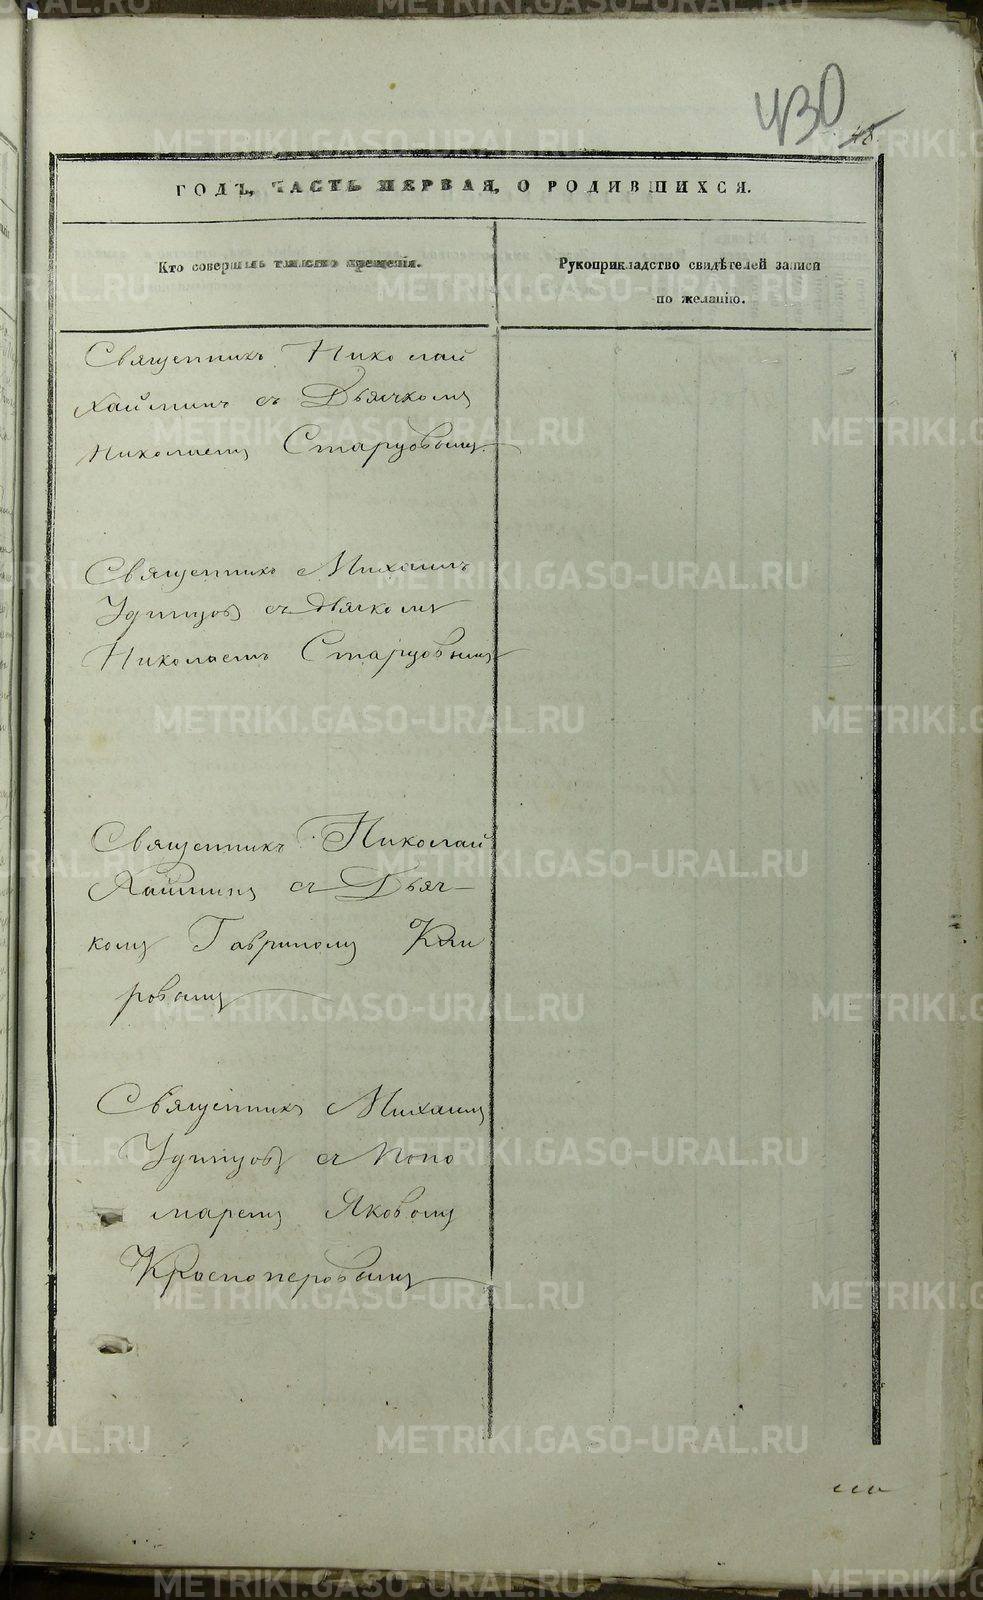 430
48
ГОДЪ, ЧАСТЬ ПЕРВАЯ, О РОДИВШИХСЯ.
Кто совершалъ таинство крещенія.
Рукоприкладство свидѣтелей записи
по желанію.
Священникъ Николай
Хайминъ съ Дьячкомъ
Николаемъ Старцовымъ
Священникъ Михаилъ
Удинцовъ съ дьячкомъ
Николаемъ Старцовымъ
Священникъ Николай
Хайминъ съ Дьяч-
комъ Гавриломъ
ровымъ
Священникъ Михаилъ
Удинцовъ съ поно
маремъ Яковомъ
Красноперовымъ
METRIKI.GASO-URAL.RU